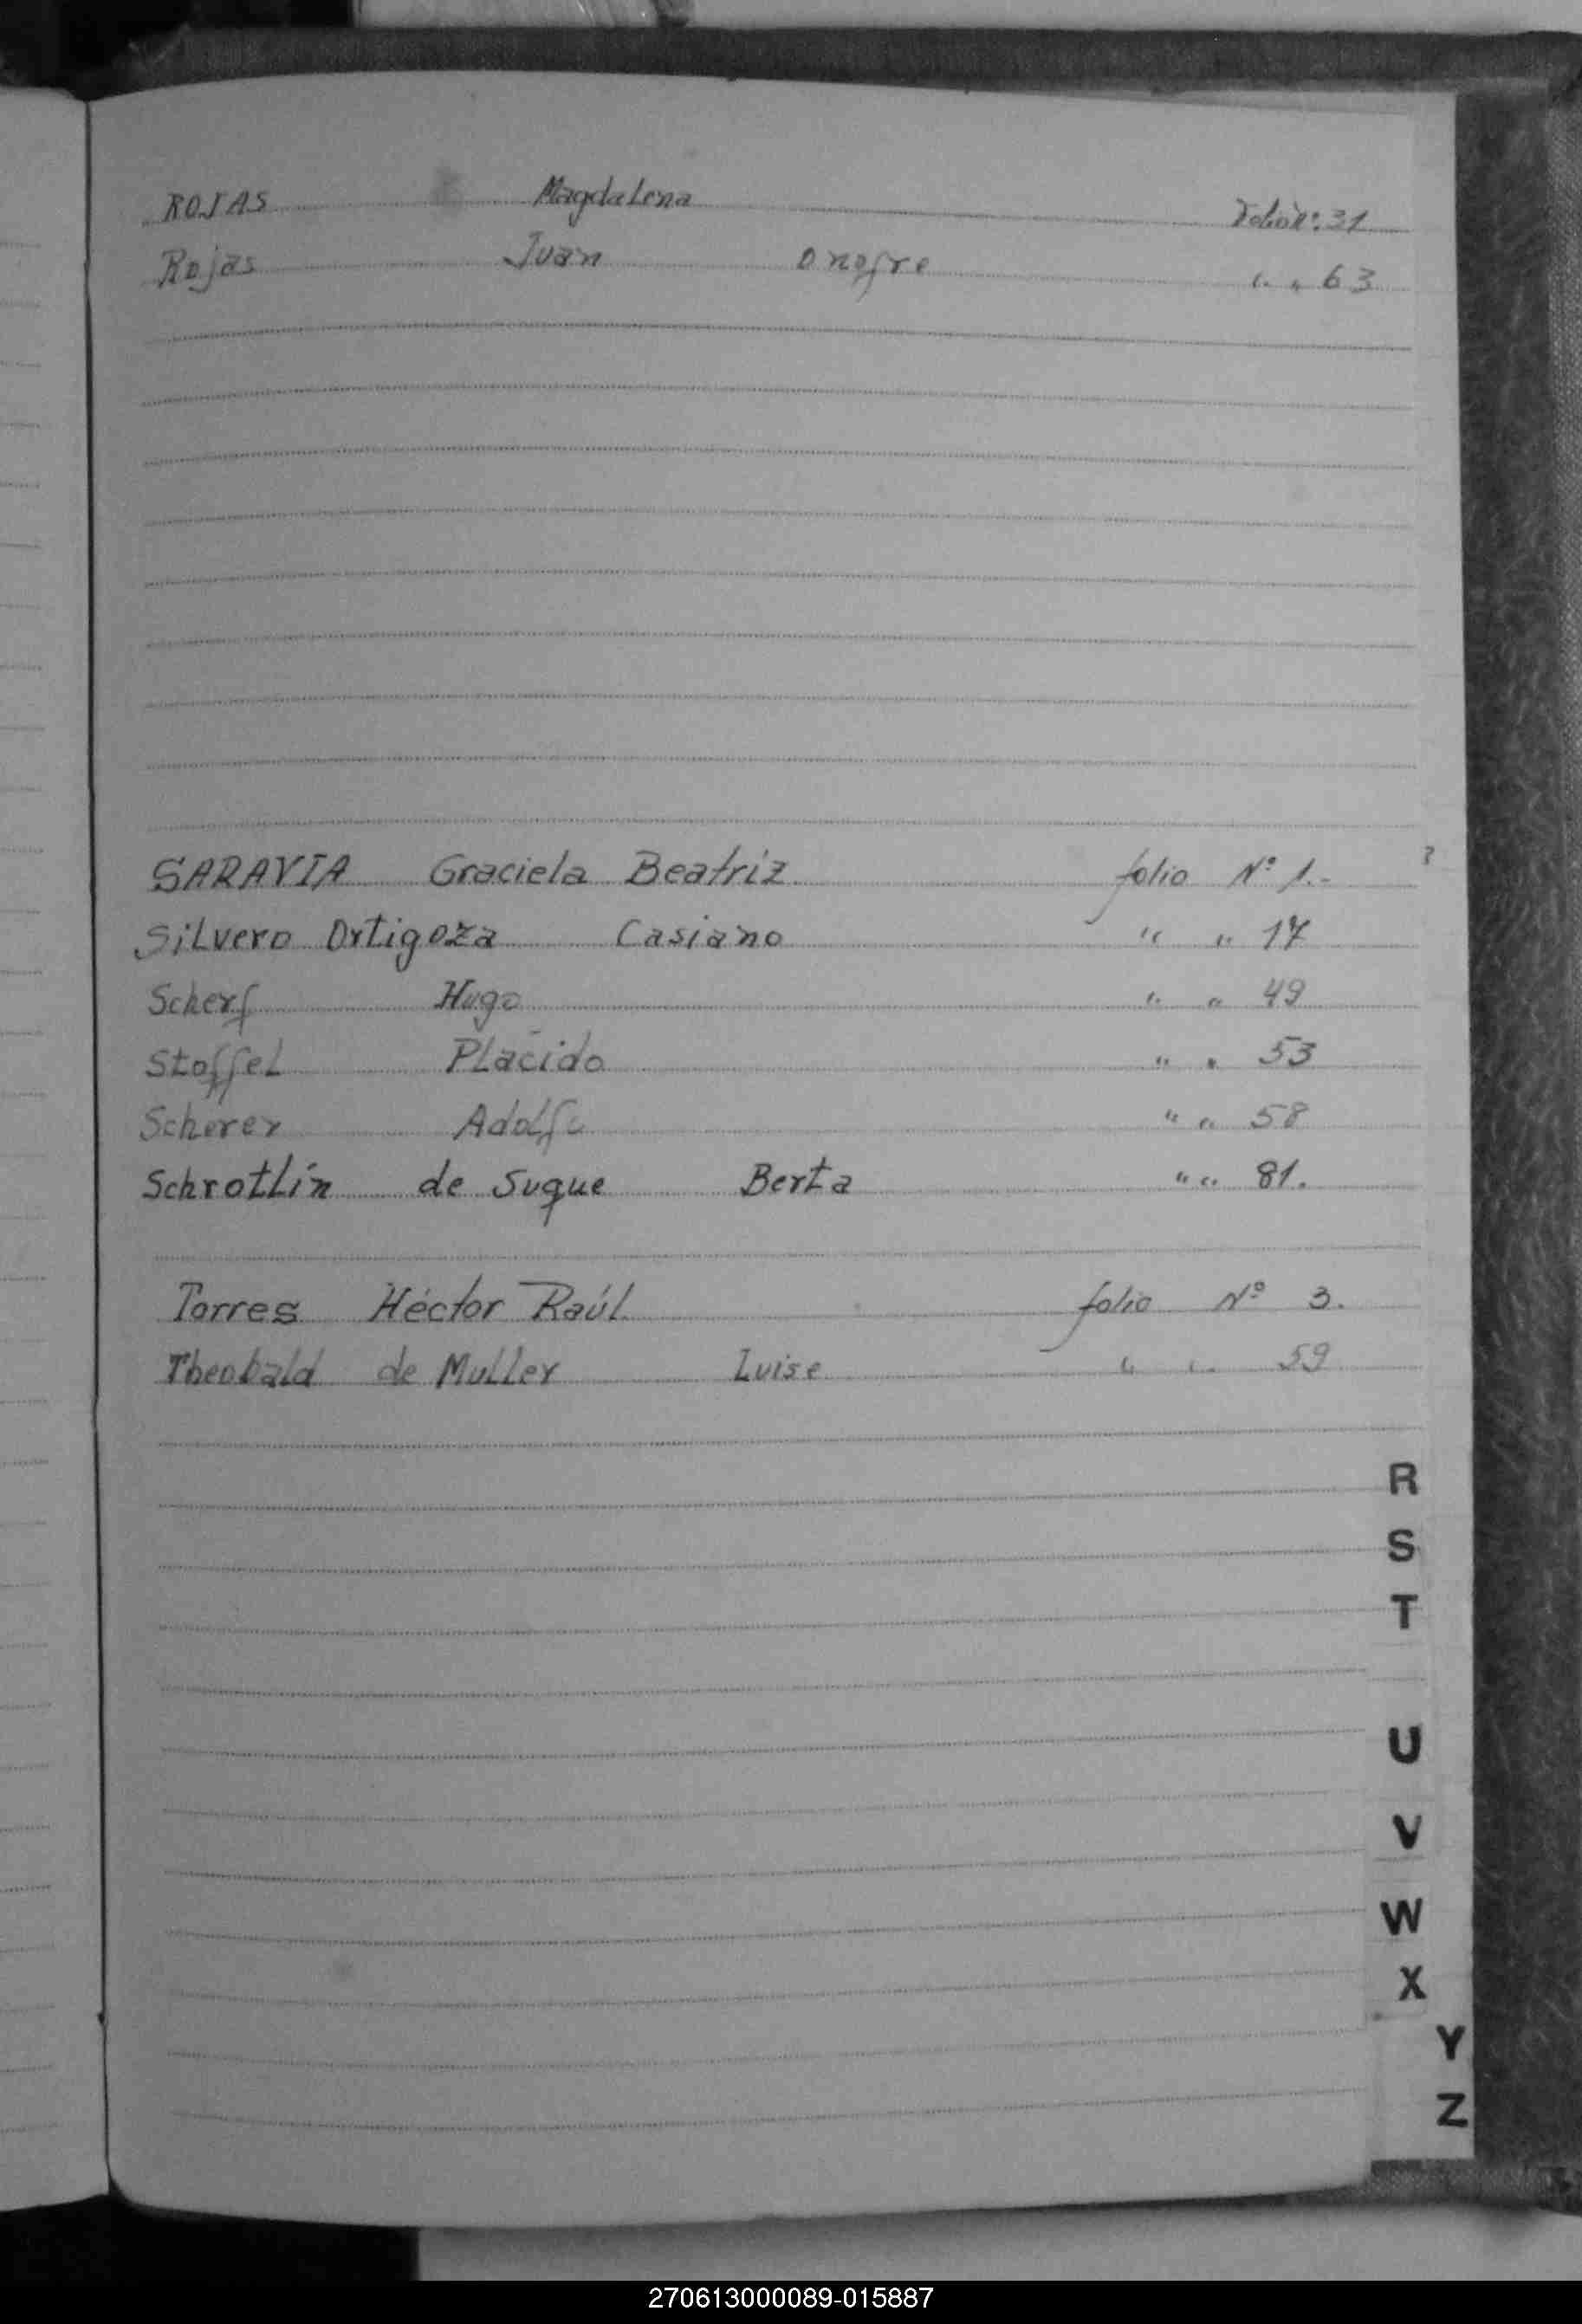 ROJAS Magdalena Folio Nº. 31
Rojas Juan Onofre " " 63
SARAVIA Graciela Beatriz folio Nº 1.-
Silvero Ortigoza Casiano " " 17
Scherf Hugo " " 49
Stoffel Placido " " 53
Scherer Adolfo " " 58
Schrotlin de Suque Berta " " 81.
Torres Héctor Raúl folio Nº 3.
Theobald de Muller Luise " " 59
R
S
T
U
V
W
X
Y
Z
270613000089-015887